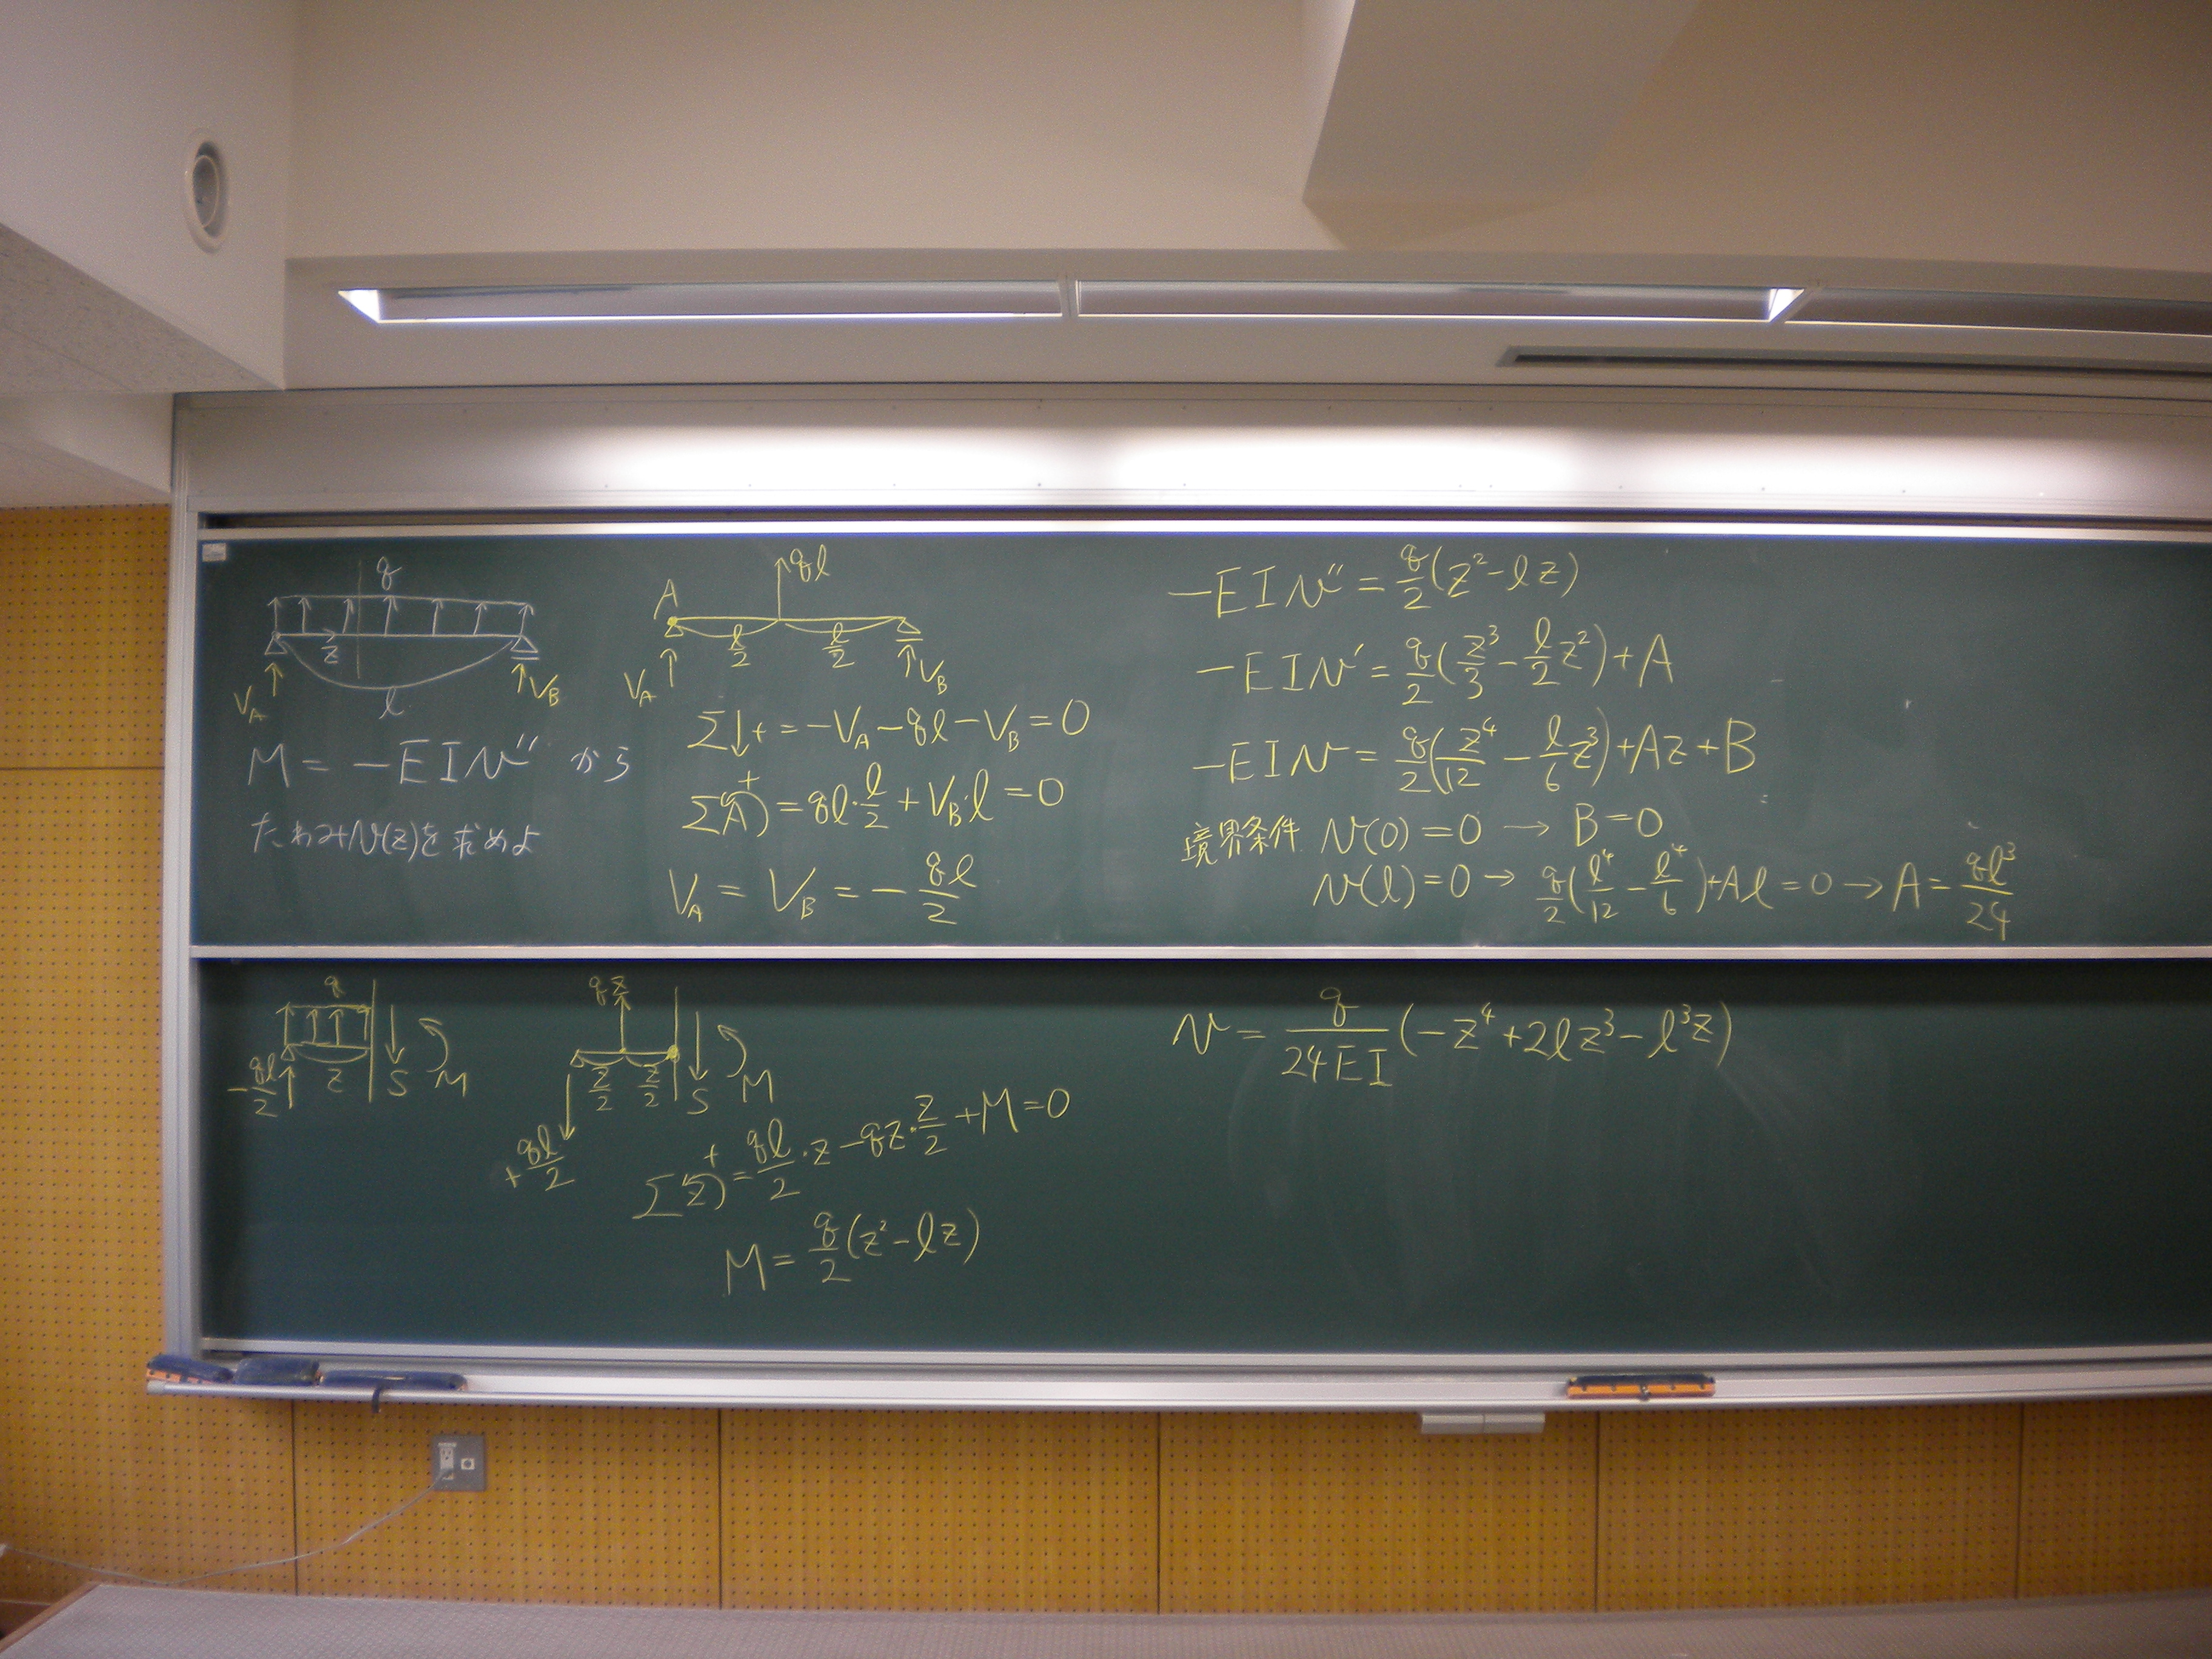 q
z
V_A
V_B
l
M = -EIv'' から
たわみv(z)を求めよ
ql
A
l/2 l/2
V_A
V_B
Σ↓+ = -V_A - ql - V_B = 0
Σ A + = ql·l/2 + V_B·l = 0
V_A = V_B = - ql/2
-EIv'' = q/2(z²-lz)
-EIv' = q/2(z³/3 - l/2 z²)+A
-EIv = q/2(z⁴/12 - l/6 z³)+Az+B
境界条件 v(0)=0 → B=0
v(l)=0 → q/2(l⁴/12 - l⁴/6)+Al=0 → A= ql³/24
q
-ql/2
z
S M
qz
z/2 z/2 S M
+ql/2
Σ z + = ql/2·z - qz·z/2 + M=0
M = q/2(z²-lz)
v = q/24EI(-z⁴+2lz³-l³z)